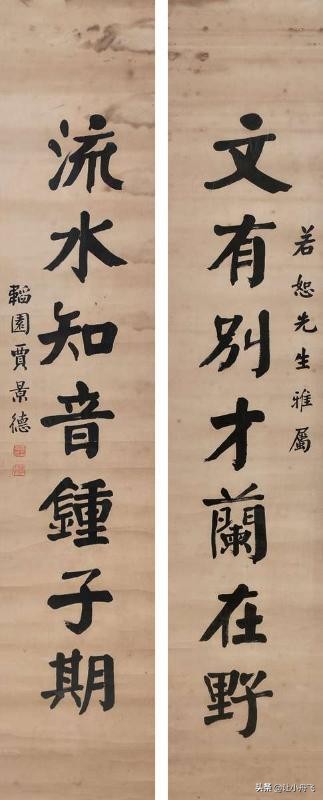 文有別才蘭在野
若恕先生雅屬
流水知音鍾子期
韜園賈景德
头条 @赴小飛飞